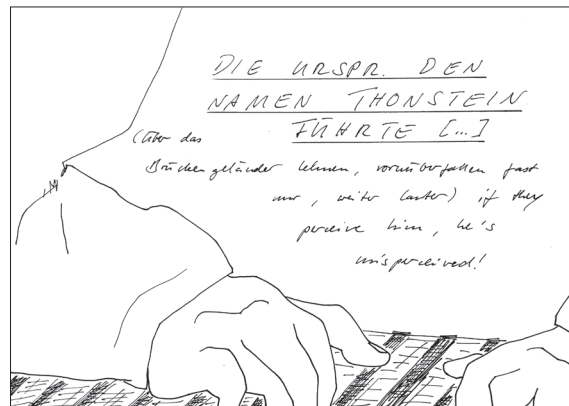 DIE URSPR. DEN
NAMEN THONSTEIN
FÜHRTE [...]
(über das
Brückengeländer lehnen, vornüberfallen fast
nur, weiter
if they
perceive him, he's
misperceived!